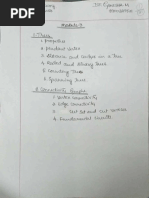 Module-4
I. Trees
1. Properties
2. pendent vertex
3. Distance and centres in a Tree
4. Rooted and Binary trees
5. Counting Trees
6. Spanning trees
II. Connectivity Graphs
1. Vertex connectivity
2. Edge connectivity
3. Cut set and Cut vertices
4. Fundamental circuits